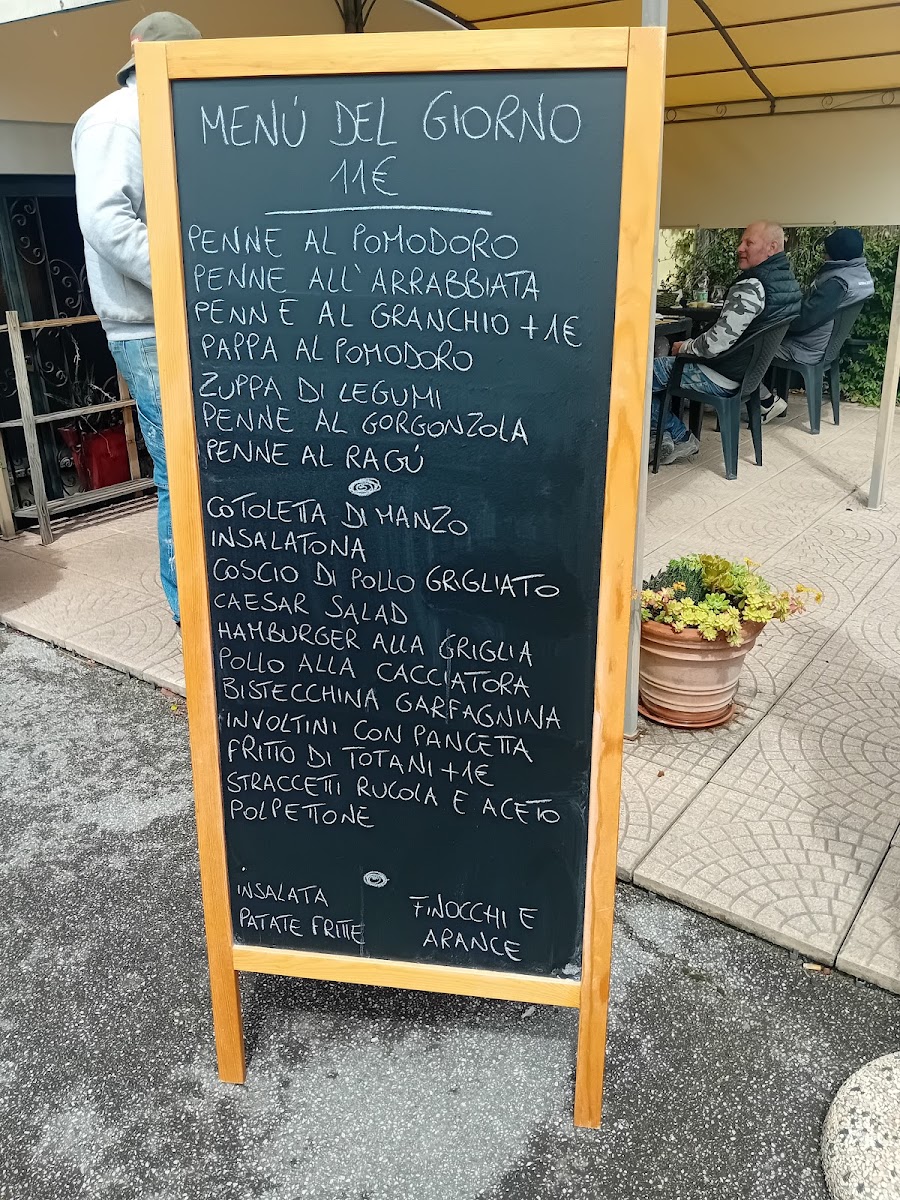 MENÚ DEL GIORNO
11€
PENNE AL POMODORO
PENNE ALL'ARRABBIATA
PENNE AL GRANCHIO +1€
PAPPA AL POMODORO
ZUPPA DI LEGUMI
PENNE AL GORGONZOLA
PENNE AL RAGÚ
COTOLETTA DI MANZO
INSALATONA
COSCIO DI POLLO GRIGLIATO
CAESAR SALAD
HAMBURGER ALLA GRIGLIA
POLLO ALLA CACCIATORA
BISTECCHINA GARFAGNINA
INVOLTINI CON PANCETTA
FRITTO DI TOTANI +1€
STRACCETTI RUCOLA E ACETO
POLPETTONE
INSALATA
PATATE FRITTE
FINOCCHI E
ARANCE